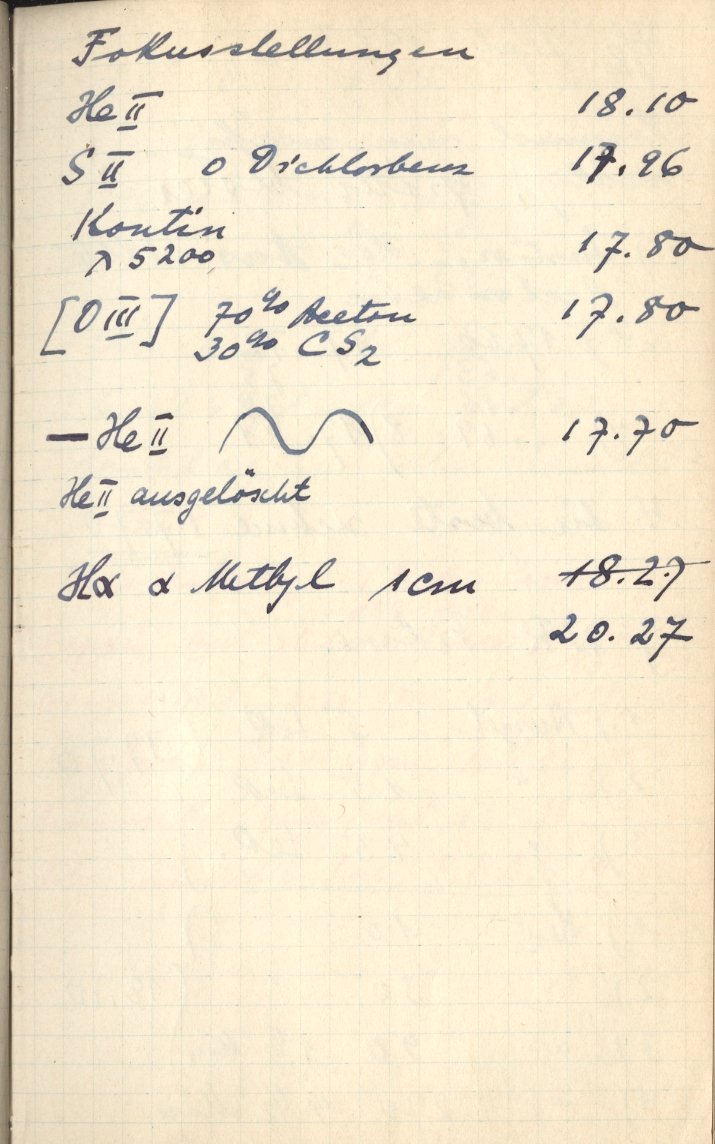 Fokusstellungen
He II 18.10
S II o Dichlorbenz 17.96
Kontin 17.80
λ 5200
[O III] 70% Aceton 17.80
30% CS2
— He II 17.70
He II ausgelöscht
Hα α Methyl 1cm 18.27
20.27